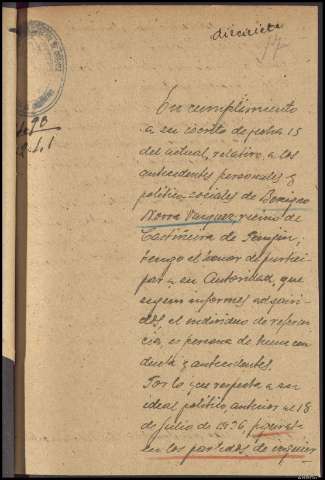 diecisiete
17
En cumplimiento
a su escrito de fecha 15
del actual, relativo a los
antecedentes personales y
politico sociales de Benigno
Vazquez, vecino de
tengo el honor de partici
par a su Autoridad, que
segun informes adquiri
dos, el individuo de referen
cia, es persona de buena con
ducta y antecedentes.
Por lo que respecta a su
ideal politico, anterior al 18
de Julio de 1936,
en los partidos de izquier